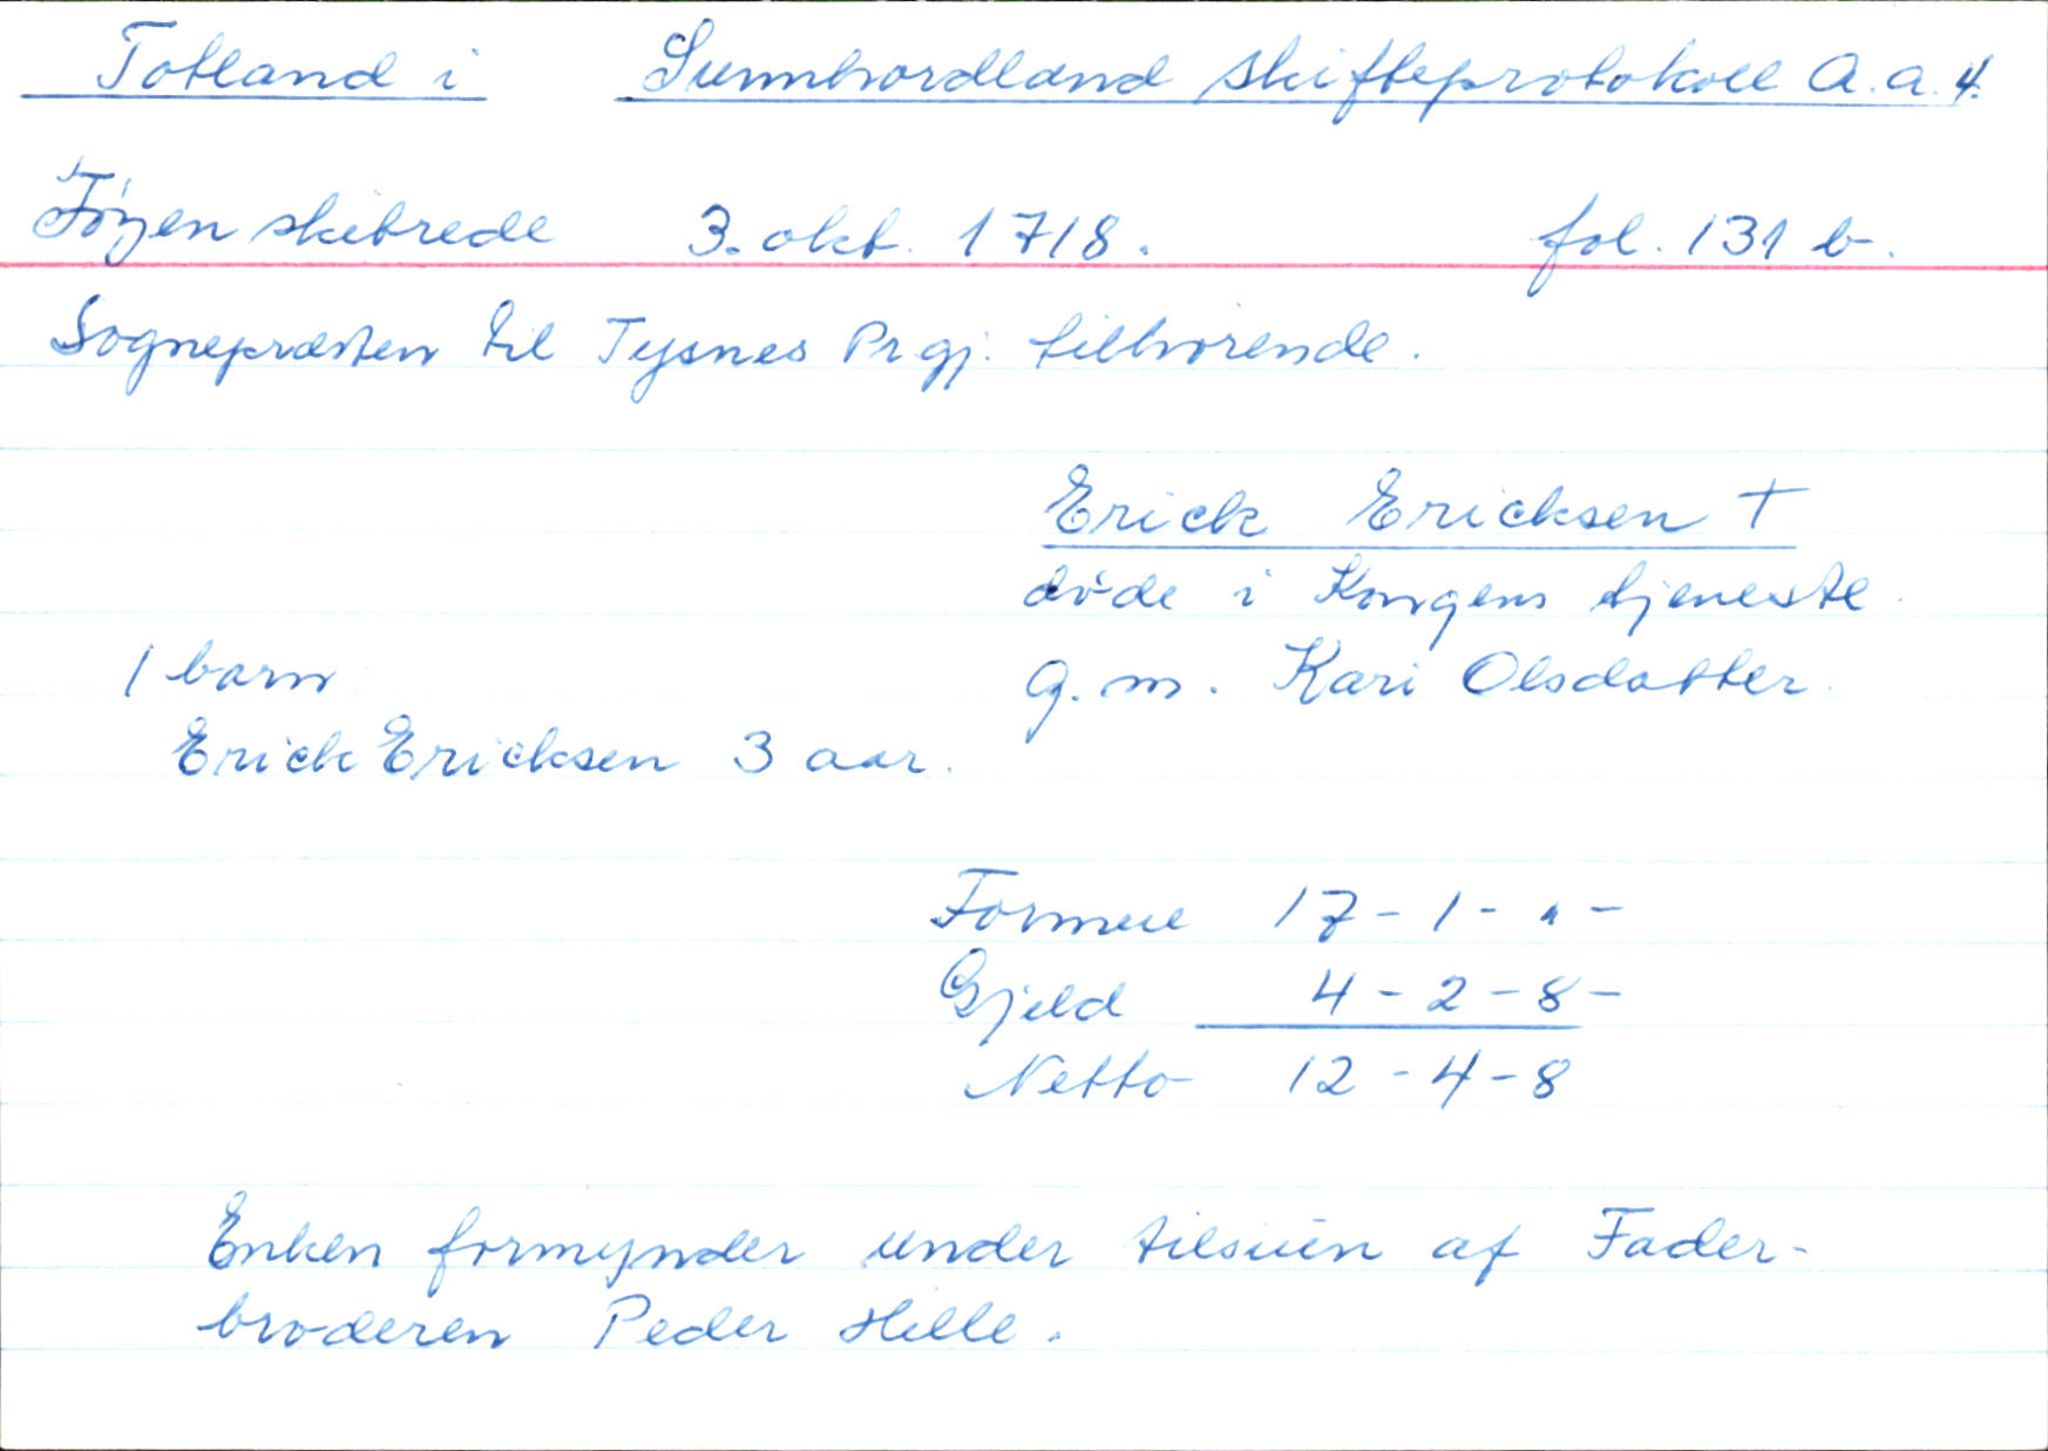 Totland i Sunnhordland skifteprotokoll A.a.4.
Føyen skibrede 3. okt. 1718. fol. 131 b.
Sognepræsten til Tysnes Prgj. tilhørende.
Erick Ericksen †
døde i Kongens tjeneste
1 barn g.m. Kari Olsdatter.
Erick Ericksen 3 aar.
Formue 17 - 1 - " -
Gjeld 4 - 2 - 8 -
Netto 12 - 4 - 8
Enken formynder under tilsiün af Fader-
broderen Peder Hille.